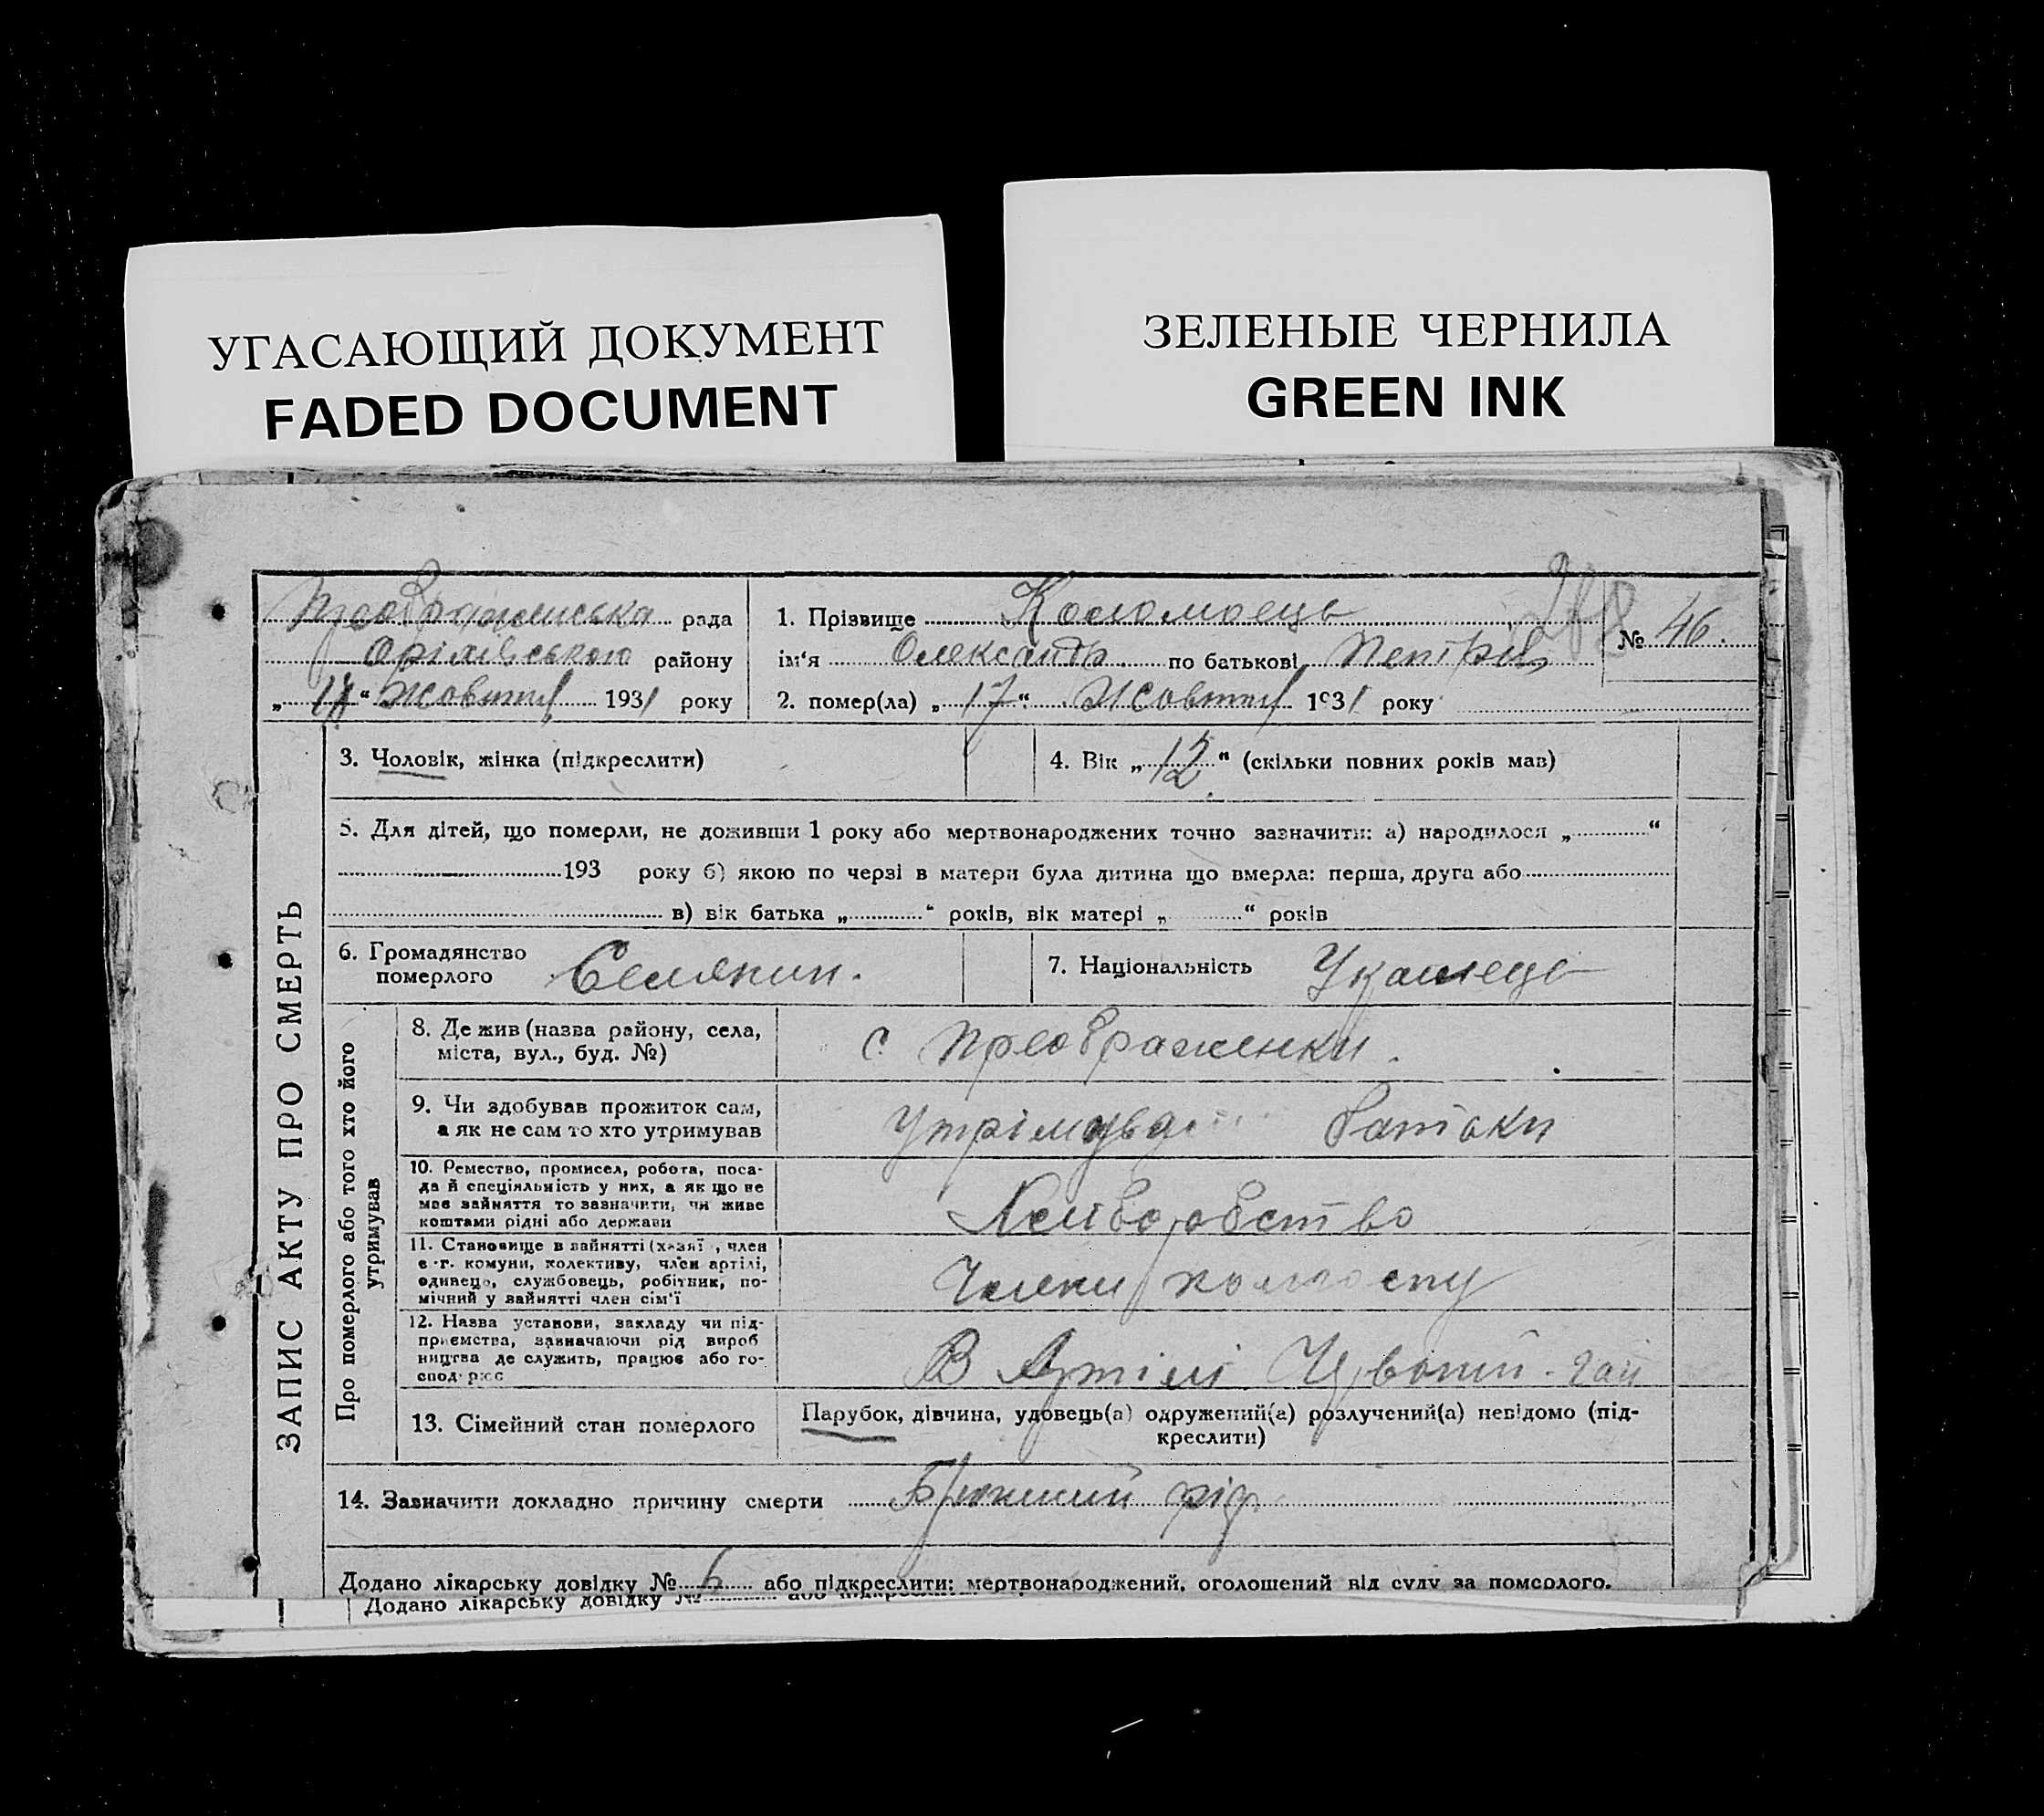 УГАСАЮЩИЙ ДОКУМЕНТ
FADED DOCUMENT
ЗЕЛЕНЫЕ ЧЕРНИЛА
GREEN INK
Преображенська рада
Оріхівського району
„ “ Жовтня 1931 року
1. Прізвище Коломоець
ім‘я Олександр по батькові Петрів
№ 46.
2. помер(ла) „17“ Жовтня 1931 року
ЗАПИС АКТУ ПРО СМЕРТЬ
3. Чоловік, жінка (підкреслити)
4. Вік „12“ (скільки повних років мав)
5. Для дітей, що померли, не доживши 1 року або мертвонароджених точно зазначити: а) народилося „ “
193 року б) якою по черзі в матери була дитина що вмерла: перша, друга або
в) вік батька „ “ років, вік матері „ “ років
6. Громадянство
померлого Селянин.
7. Національність
Про померлого або того хто його
утримував
8. Де жив (назва району, села,
міста, вул., буд. №)
с Преображенки.
9. Чи здобував прожиток сам,
а як не сам то хто утримував
батьки
10. Ремество, промисел, робота, поса-
да й спеціяльність у них, а як що не
мав зайняття то зазначити, чи живе
коштами рідні або держави
11. Становище в зайнятті (хазяї , член
с.-г. комуни, колективу, член артілі,
одинець, службовець, робітник, по-
мічний у зайнятті член сім‘ї
Члени колгоспу
12. Назва установи, закладу чи під-
приємства, зазначаючи рід вироб
ництва де служить, працює або го-
сподарює
В Артілі гай
13. Сімейний стан померлого
Парубок, дівчина, удовець(а) одружений(а) розлучений(а) невідомо (під-
креслити)
14. Зазначити докладно причину смерти Брюшний
Додано лікарську довідку № 6 або підкреслити: мертвонароджений, оголошений від суду за померлого.
Додано лікарську довідку №